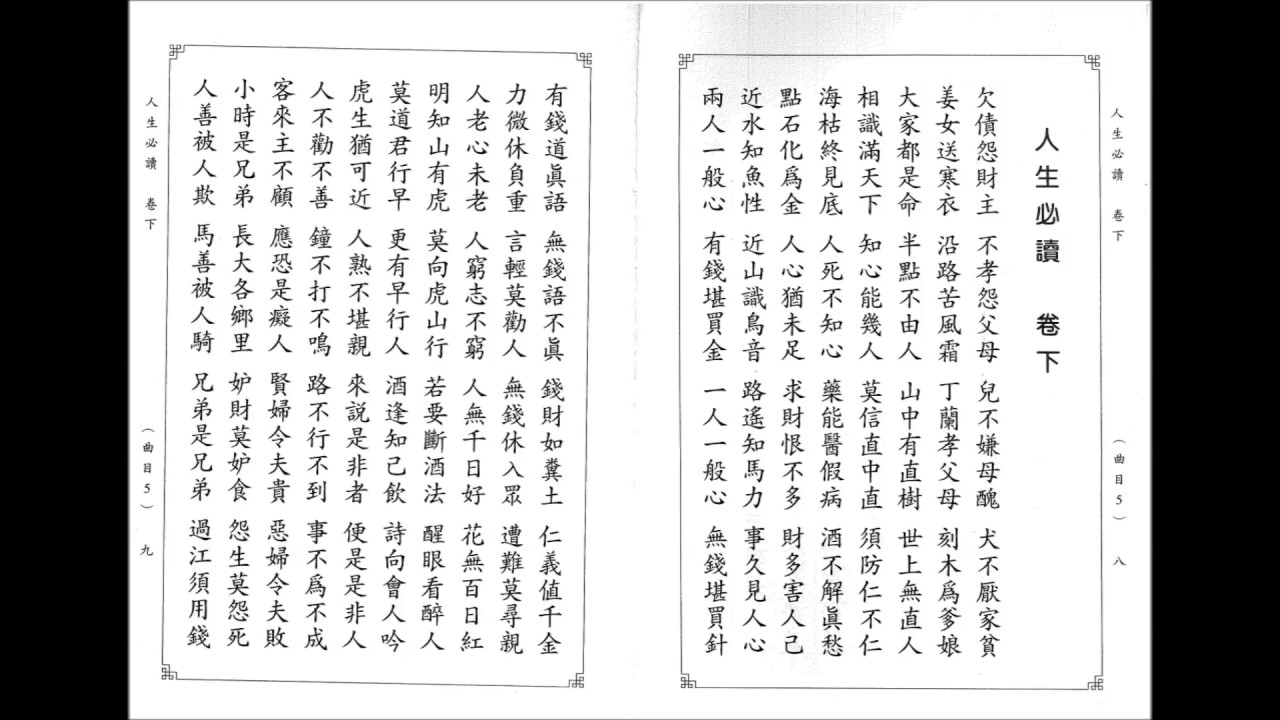 人生必讀 卷下
(曲目5) 八
人生必讀 卷下
欠債怨財主 不孝怨父母 兒不嫌母醜 犬不厭家貧
姜女送寒衣 沿路苦風霜 丁蘭孝父母 刻木為爹娘
大家都是命 半點不由人 山中有直樹 世上無直人
相識滿天下 知心能幾人 莫信直中直 須防仁不仁
海枯終見底 人死不知心 藥能醫假病 酒不解眞愁
點石化為金 人心猶未足 求財恨不多 財多害人己
近水知魚性 近山識鳥音 路遙知馬力 事久見人心
兩人一般心 有錢堪買金 一人一般心 無錢堪買針
有錢道眞語 無錢語不眞 錢財如糞土 仁義值千金
力微休負重 言輕莫勸人 無錢休入眾 遭難莫尋親
人老心未老 人窮志不窮 人無千日好 花無百日紅
明知山有虎 莫向虎山行 若要斷酒法 醒眼看醉人
莫道君行早 更有早行人 酒逢知己飲 詩向會人吟
虎生猶可近 人熟不堪親 來說是非者 便是是非人
人不勸不善 鐘不打不鳴 路不行不到 事不為不成
客來主不顧 應恐是癡人 賢婦令夫貴 惡婦令夫敗
小時是兄弟 長大各鄉里 妒財莫妒食 怨生莫怨死
人善被人欺 馬善被人騎 兄弟是兄弟 過江須用錢
人生必讀 卷下
(曲目5) 九